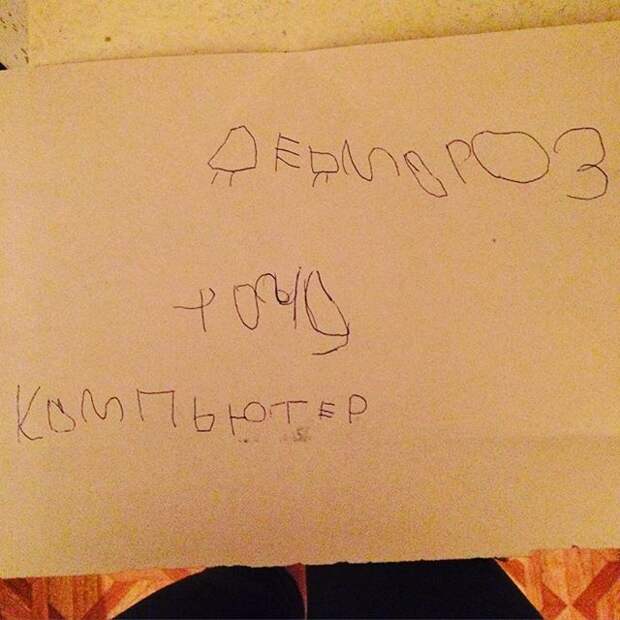 ДЕДМОРОЗ
ХОЧУ
КОМПЬЮТЕР